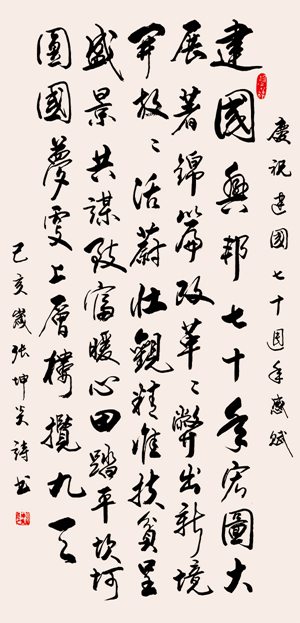 慶祝建國七十周年感賦
建國興邦七十年宏圖大
展著錦篇改革々弊出新境
開放々活蔚壯觀精准扶貧呈
盛景共謀致富暖心田踏平坎坷
圓國夢更上層樓攬九天
己亥歲張坤炎詩书